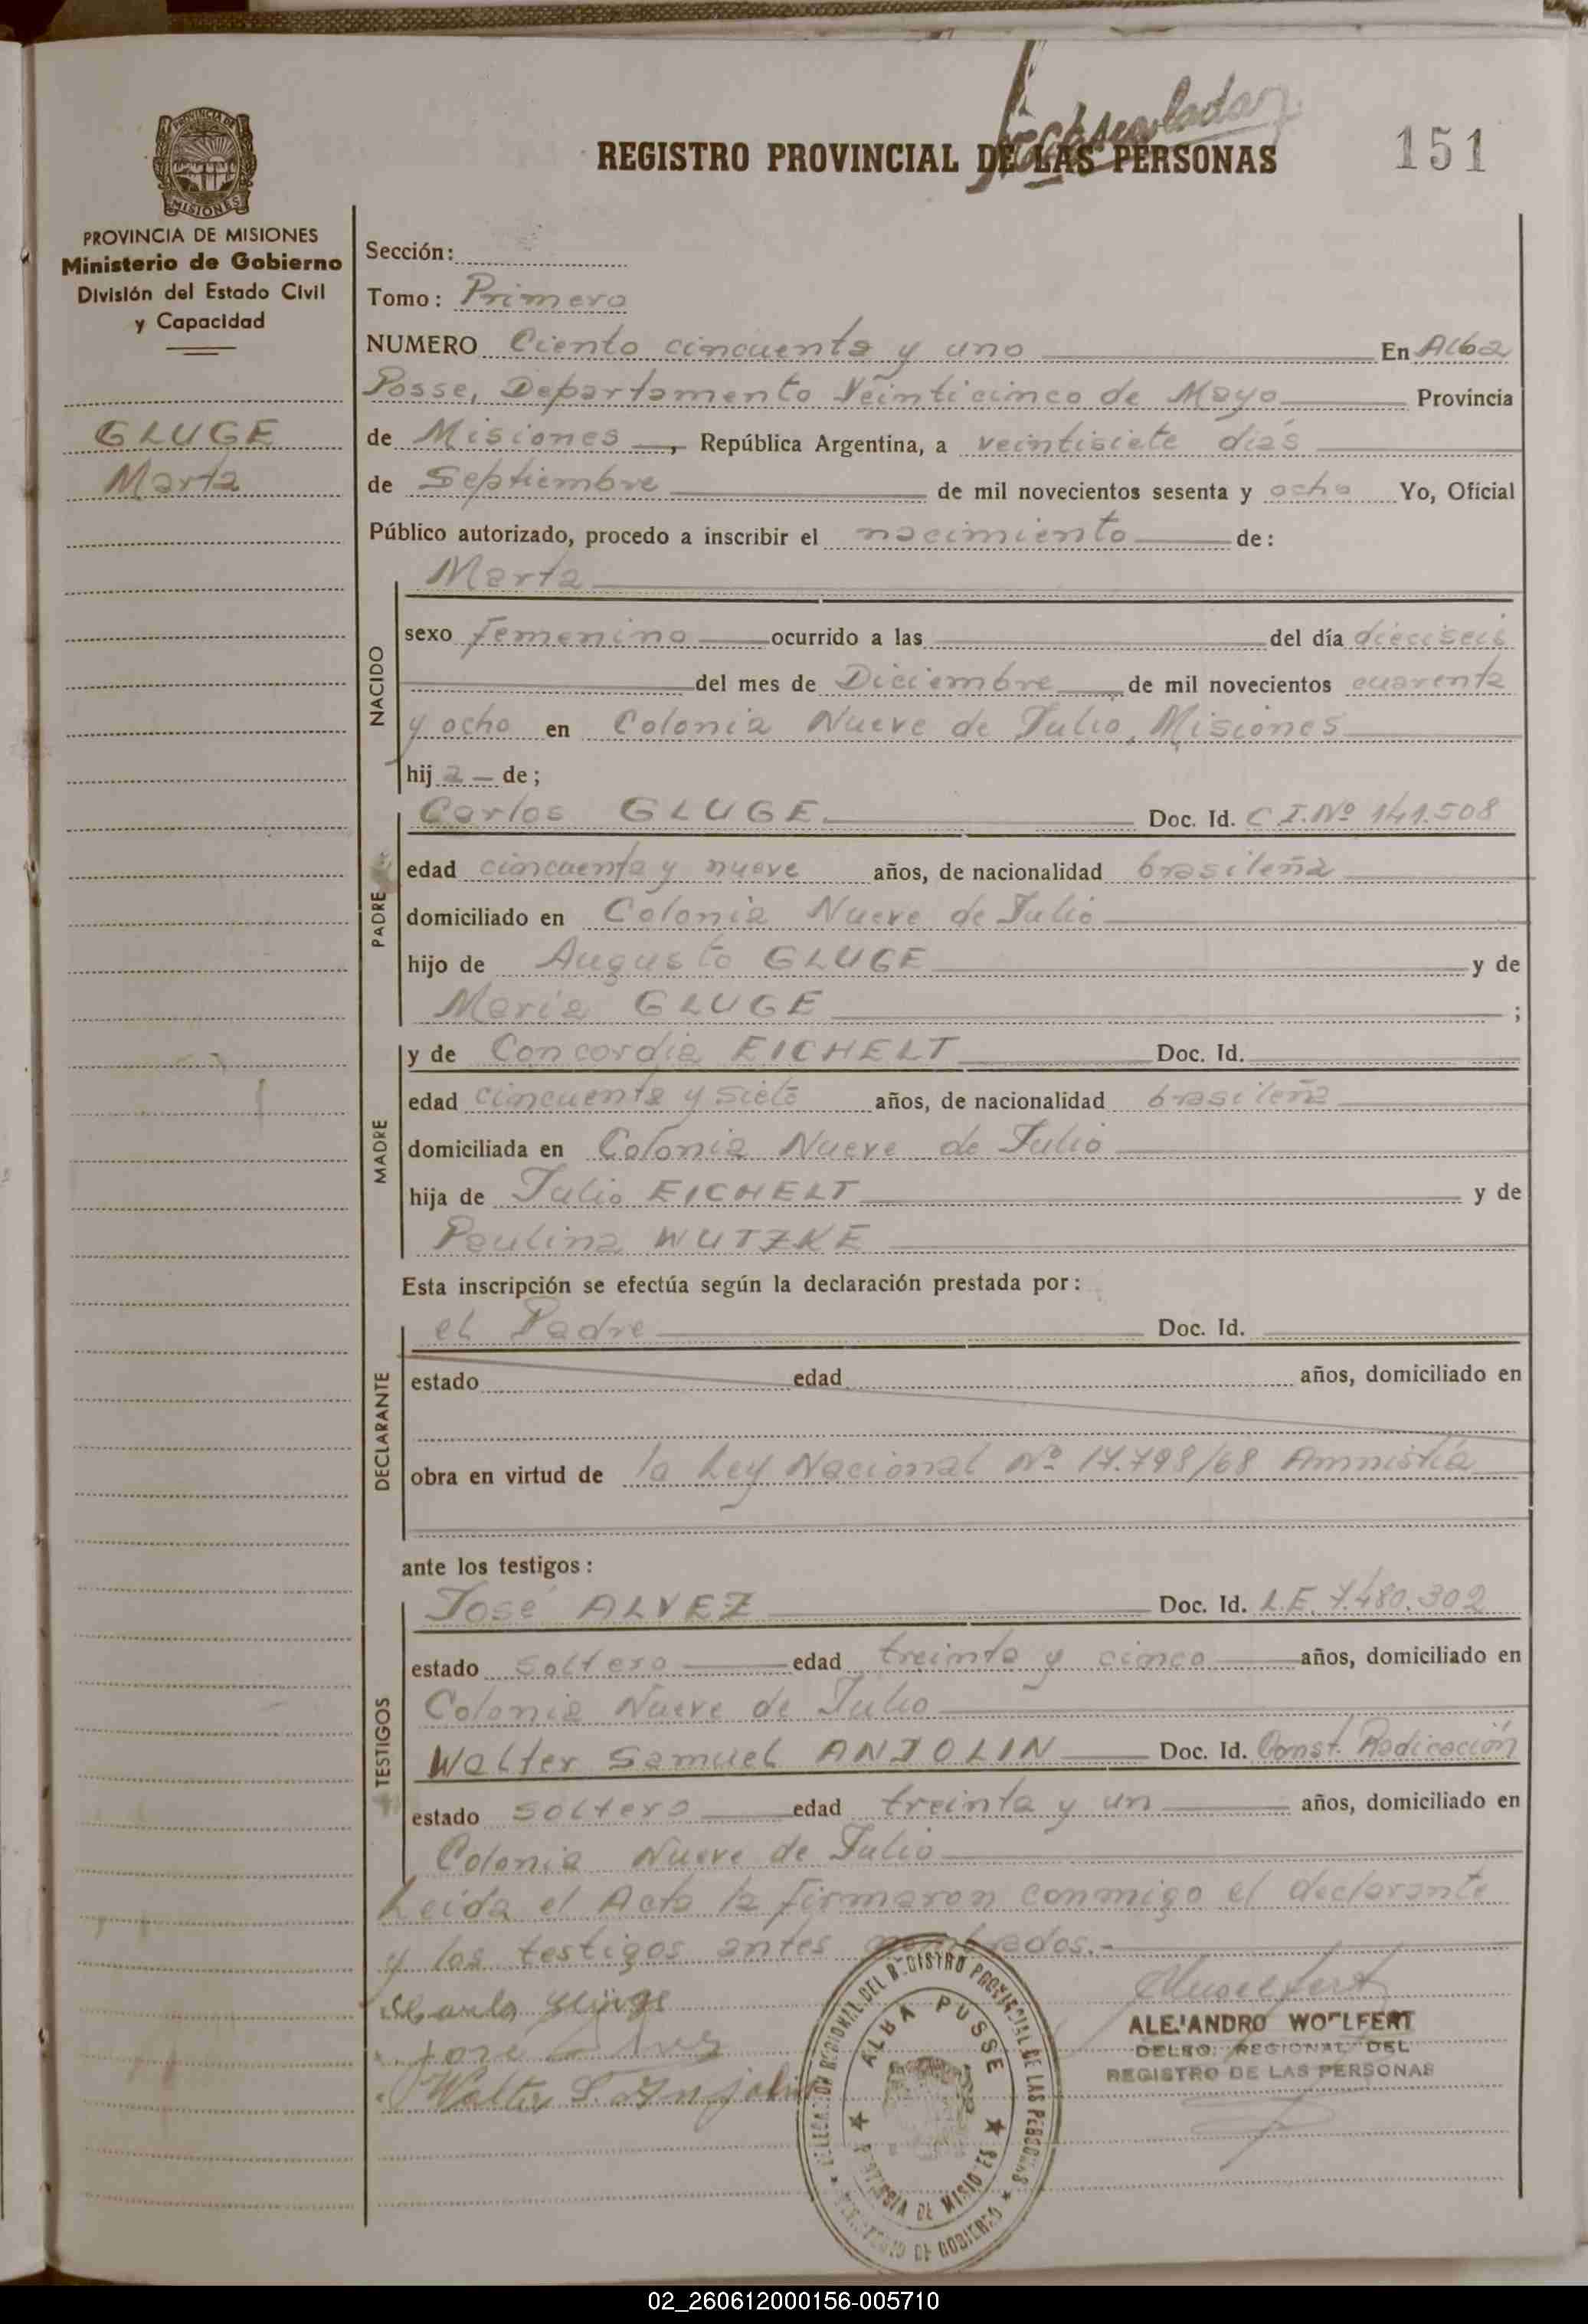 REGISTRO PROVINCIAL DE LAS PERSONAS 151
PROVINCIA DE MISIONES
MISIONES
PROVINCIA DE MISIONES
Ministerio de Gobierno
División del Estado Civil
y Capacidad
GLUGE
Marta
Sección:
Tomo: Primero
NUMERO Ciento cincuenta y uno En Alba
Posse, Departamento Veinticinco de Mayo Provincia
de Misiones, República Argentina, a veintisiete días
de Septiembre de mil novecientos sesenta y ocho Yo, Oficial
Público autorizado, procedo a inscribir el nacimiento de:
Marta
NACIDO
sexo femenino ocurrido a las del día dieciseis
del mes de Diciembre de mil novecientos cuarenta
y ocho en Colonia Nueve de Julio, Misiones
hij a de;
PADRE
Carlos GLUGE Doc. Id. C.I.Nº 141.508
edad cincuenta y nueve años, de nacionalidad brasileña
domiciliado en Colonia Nueve de Julio
hijo de Augusto GLUGE y de
María GLUGE ;
MADRE
y de Concordia EICHELT Doc. Id.
edad cincuenta y siete años, de nacionalidad brasileña
domiciliada en Colonia Nueve de Julio
hija de Julio EICHELT y de
Paulina WUTZKE
Esta inscripción se efectúa según la declaración prestada por:
DECLARANTE
el Padre Doc. Id.
estado edad años, domiciliado en
obra en virtud de la Ley Nacional Nº 17.798/68 Amnistía
ante los testigos:
TESTIGOS
José ALVEZ Doc. Id. L.E. 7.480.302
estado soltero edad treinta y cinco años, domiciliado en
Colonia Nueve de Julio
Walter Samuel ANJOLIN Doc. Id. Const. Radicación
estado soltero edad treinta y un años, domiciliado en
Colonia Nueve de Julio
Leída el Acta la firmaron conmigo el declarante
y los testigos antes nombrados.-
José Alves
Walter S. Anjolin
DELEGACION REGIONAL DEL REGISTRO PROVINCIAL DE LAS PERSONAS
ALBA POSSE
PROVINCIA DE MISIONES
MINISTERIO DE GOBIERNO
ALEJANDRO WOELFERT
DELEG. REGIONAL DEL
REGISTRO DE LAS PERSONAS
02_260612000156-005710